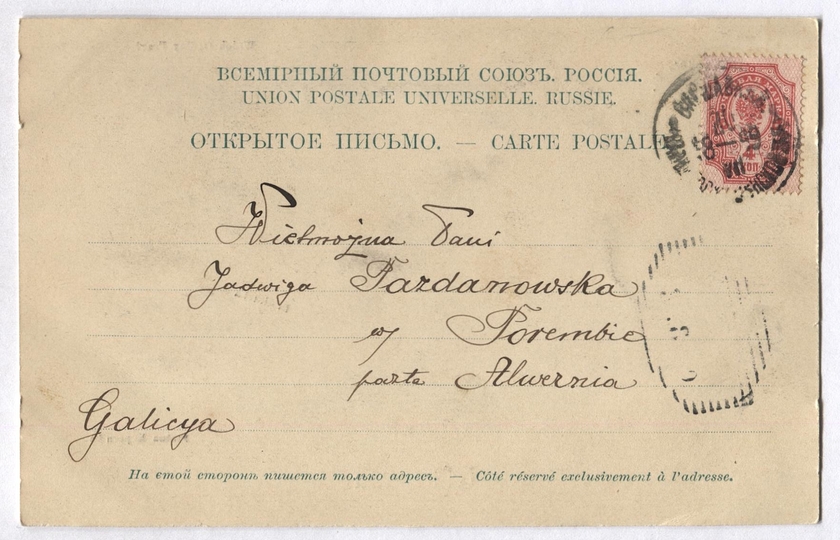 ВСЕМІРНЫЙ ПОЧТОВЫЙ СОЮЗЪ. РОССІЯ.
UNION POSTALE UNIVERSELLE. RUSSIE.
ОТКРЫТОЕ ПИСЬМО. — CARTE POSTALE
Wielmożna Pani
Jadwiga Pazdanowska
w Porembie
poczta Alwernia
Galicya
На етой сторонѣ пишется только адресъ. — Côté réservé exclusivement à l'adresse.